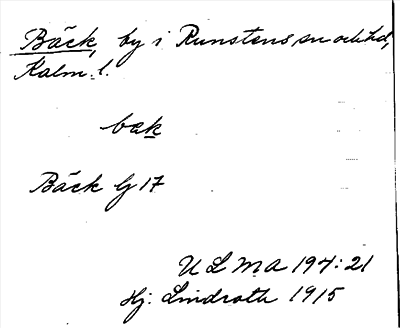 Bäck, by i Runstens sn och hd,
Kalm. l.
bæk
Bäck G 17
ULMA 194:21
Hj. Lindroth 1915